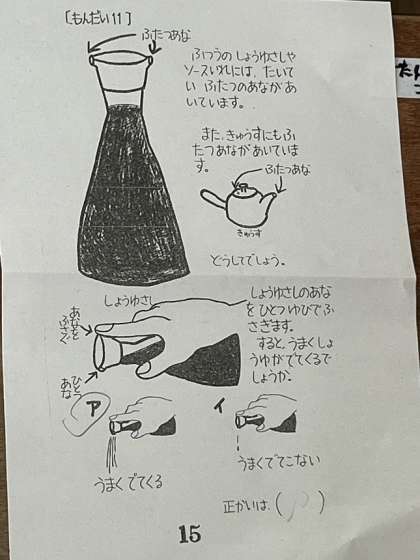 [もんだい11]
ふたつあな
ふつうのしょうゆさしや
ソースいれには、たいて
い ふたつのあながあ
いています。
また、きゅうすにもふ
たつあながあいていま
す。
ふたつあな
きゅうす
どうしてでしょう。
しょうゆさし
しょうゆさしのあな
をひとつゆびでふ
さぎます。
すると、うまくしょ
うゆがでてくるで
しょうか。
あなを
ふさぐ
ひとつ
あな
ア
うまくでてくる
イ
うまくでてこない
正かいは（　）
15